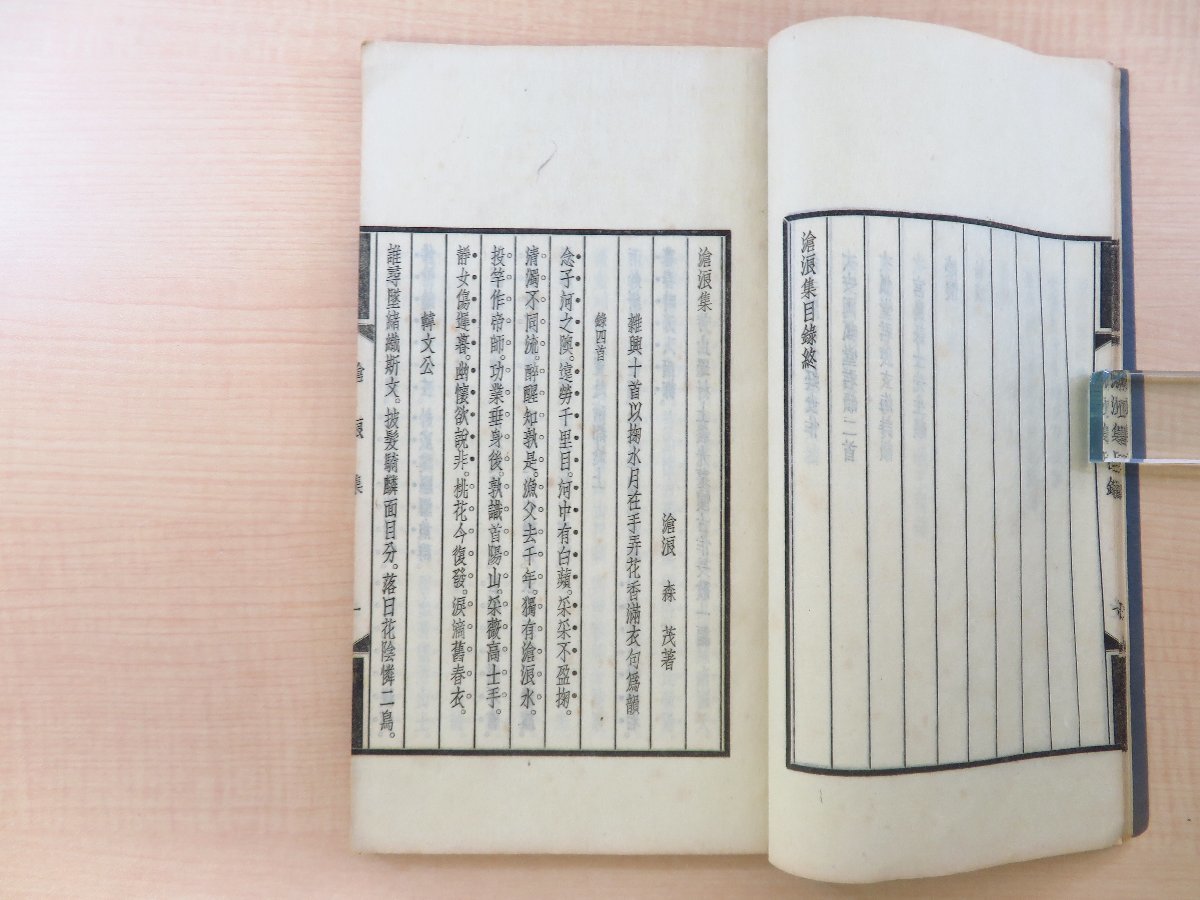 滄浪集目錄終
滄浪集
滄浪　森　茂著
雜興十首以掬水月在手弄花香滿衣句爲韻
錄四首
念子河之隩。遠勞千里目。河中有白蘋。采采不盈掬。
清濁不同流。醉醒知孰是。漁父去千年。獨有滄浪水。
投竿作帝師。功業垂身後。孰識首陽山。采薇高士手。
靜女傷遲暮。幽懷欲說非。桃花今復發。淚滴舊春衣。
韓文公
誰尋墜緖織斯文。披髮騎麟面目分。落日花陰憐二鳥。
滄浪集
一